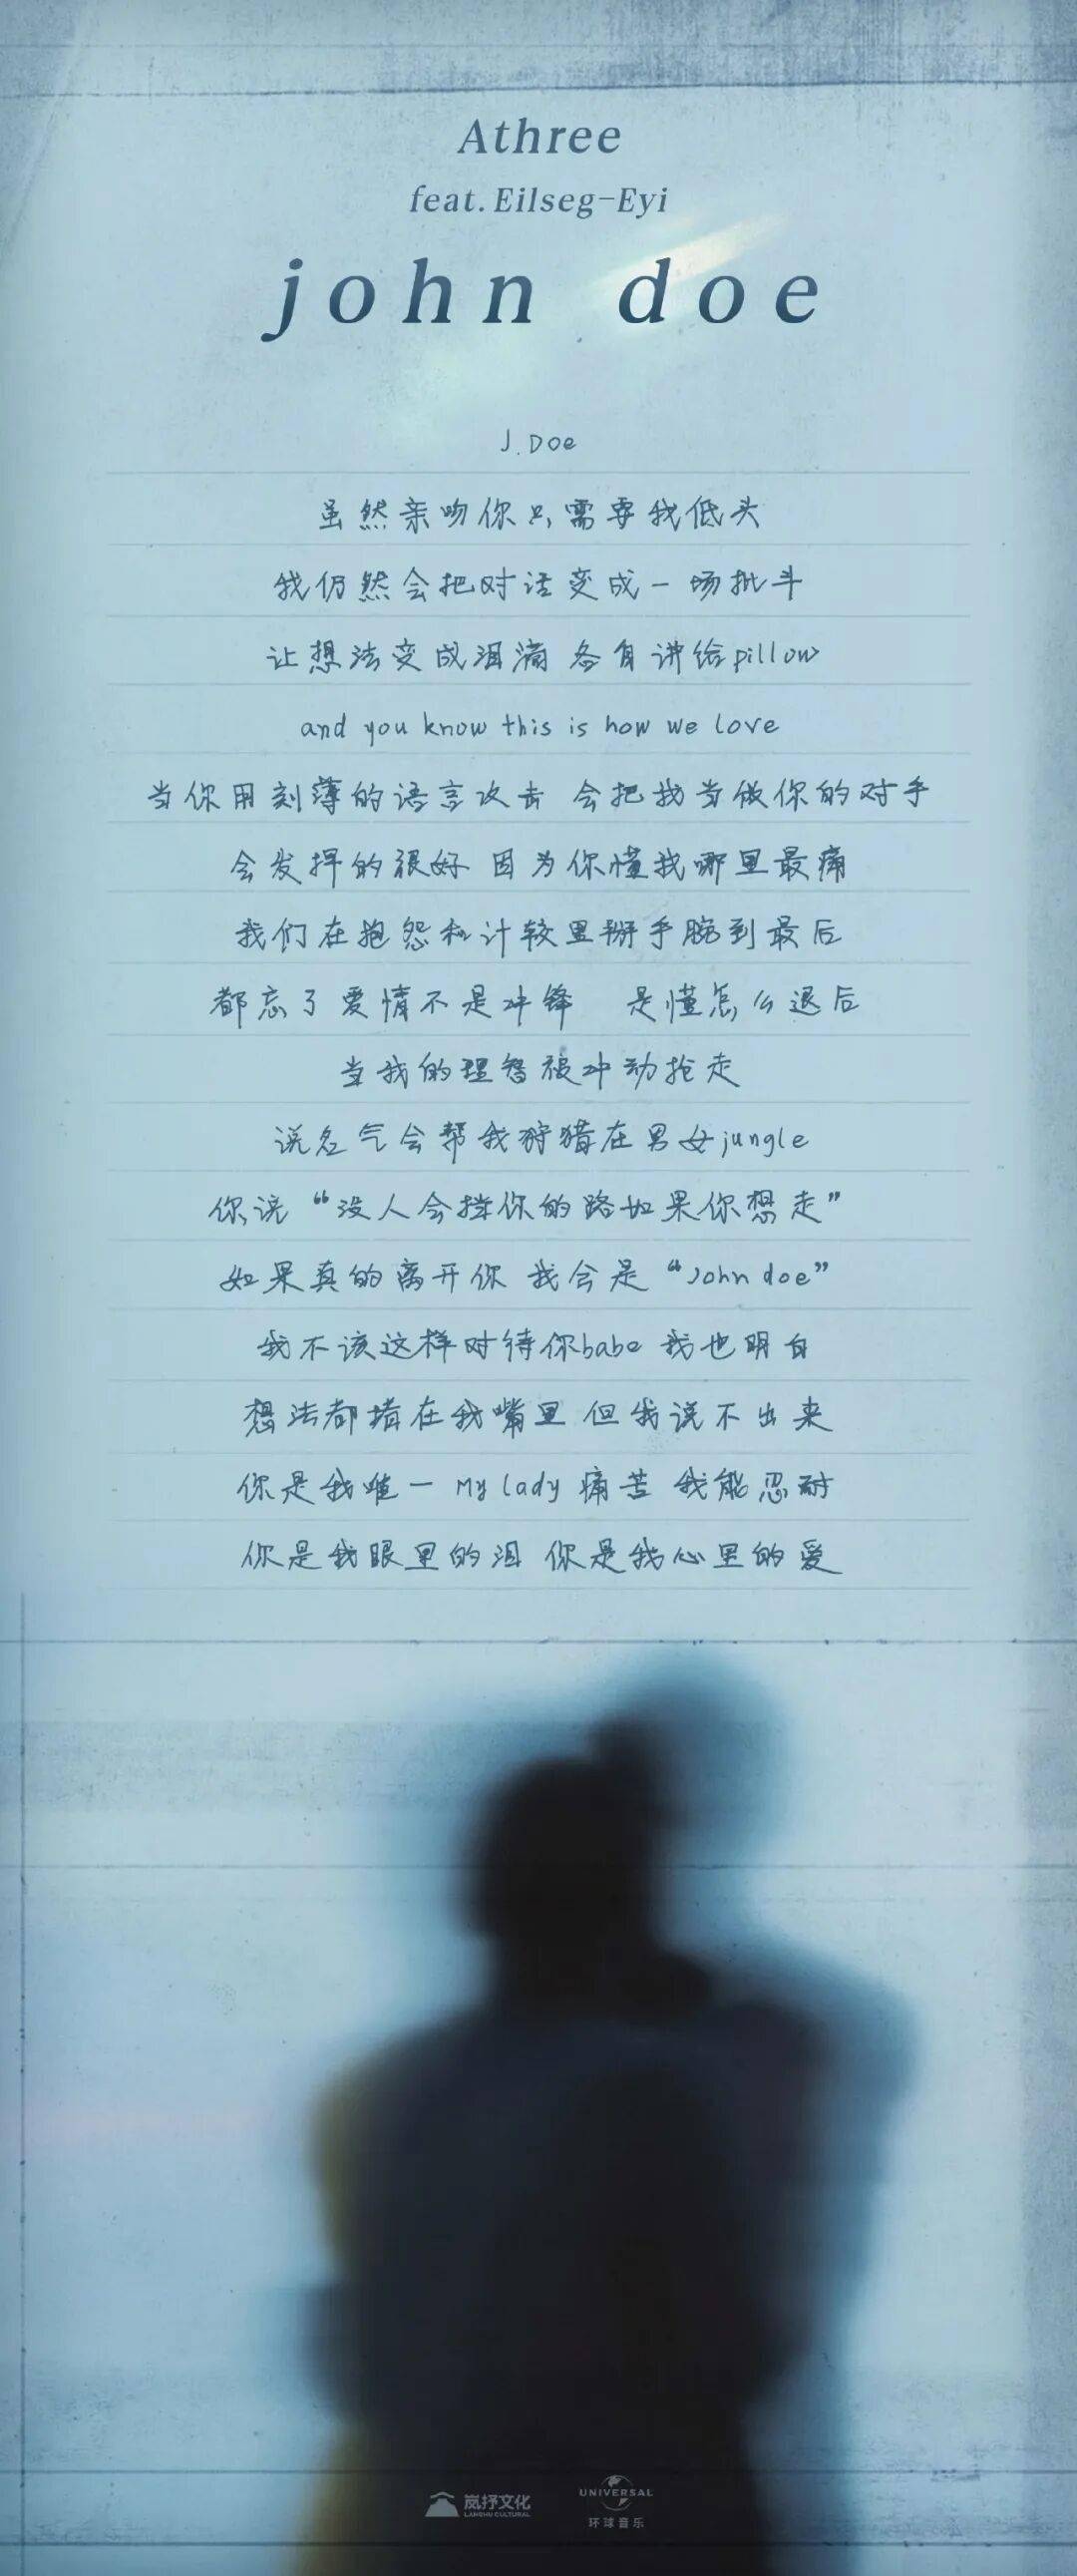 Athree
feat. Eilseg-Eyi
john doe
J. Doe
虽然亲吻你只需要我低头
我仍然会把对话变成一场批斗
让想法变成泪滴 各自讲给pillow
and you know this is how we love
当你用刻薄的语言攻击 会把我当做你的对手
会发挥的很好 因为你懂我哪里最痛
我们在抱怨和计较里掰手腕到最后
都忘了爱情不是冲锋 是懂怎么退后
当我的理智被冲动抢走
说名气会帮我狩猎在男女jungle
你说“没人会挡你的路如果你想走”
如果真的离开你 我会是“John doe”
我不该这样对待你babe 我也明白
想法都堵在我嘴里 但我说不出来
你是我唯一 My lady 痛苦 我能忍耐
你是我眼里的泪 你是我心里的爱
岚抒文化
LANSHU CULTURAL
UNIVERSAL
环球音乐